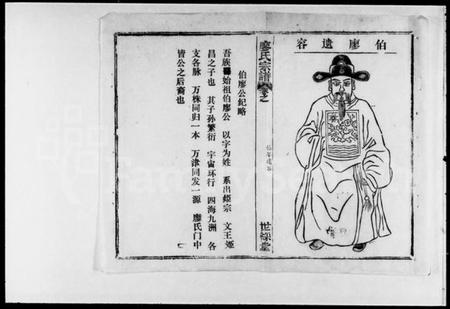 伯廖遺容
廖氏宗譜
世綵堂
伯廖公紀略
吾族始祖伯廖公 以字為姓 系出姬宗 文王姬
昌之子也 其子孫繁衍 宇宙环行 四海九洲 各
支各脉 万株同归一本 万津同发一源 廖氏門中
皆公之后裔也